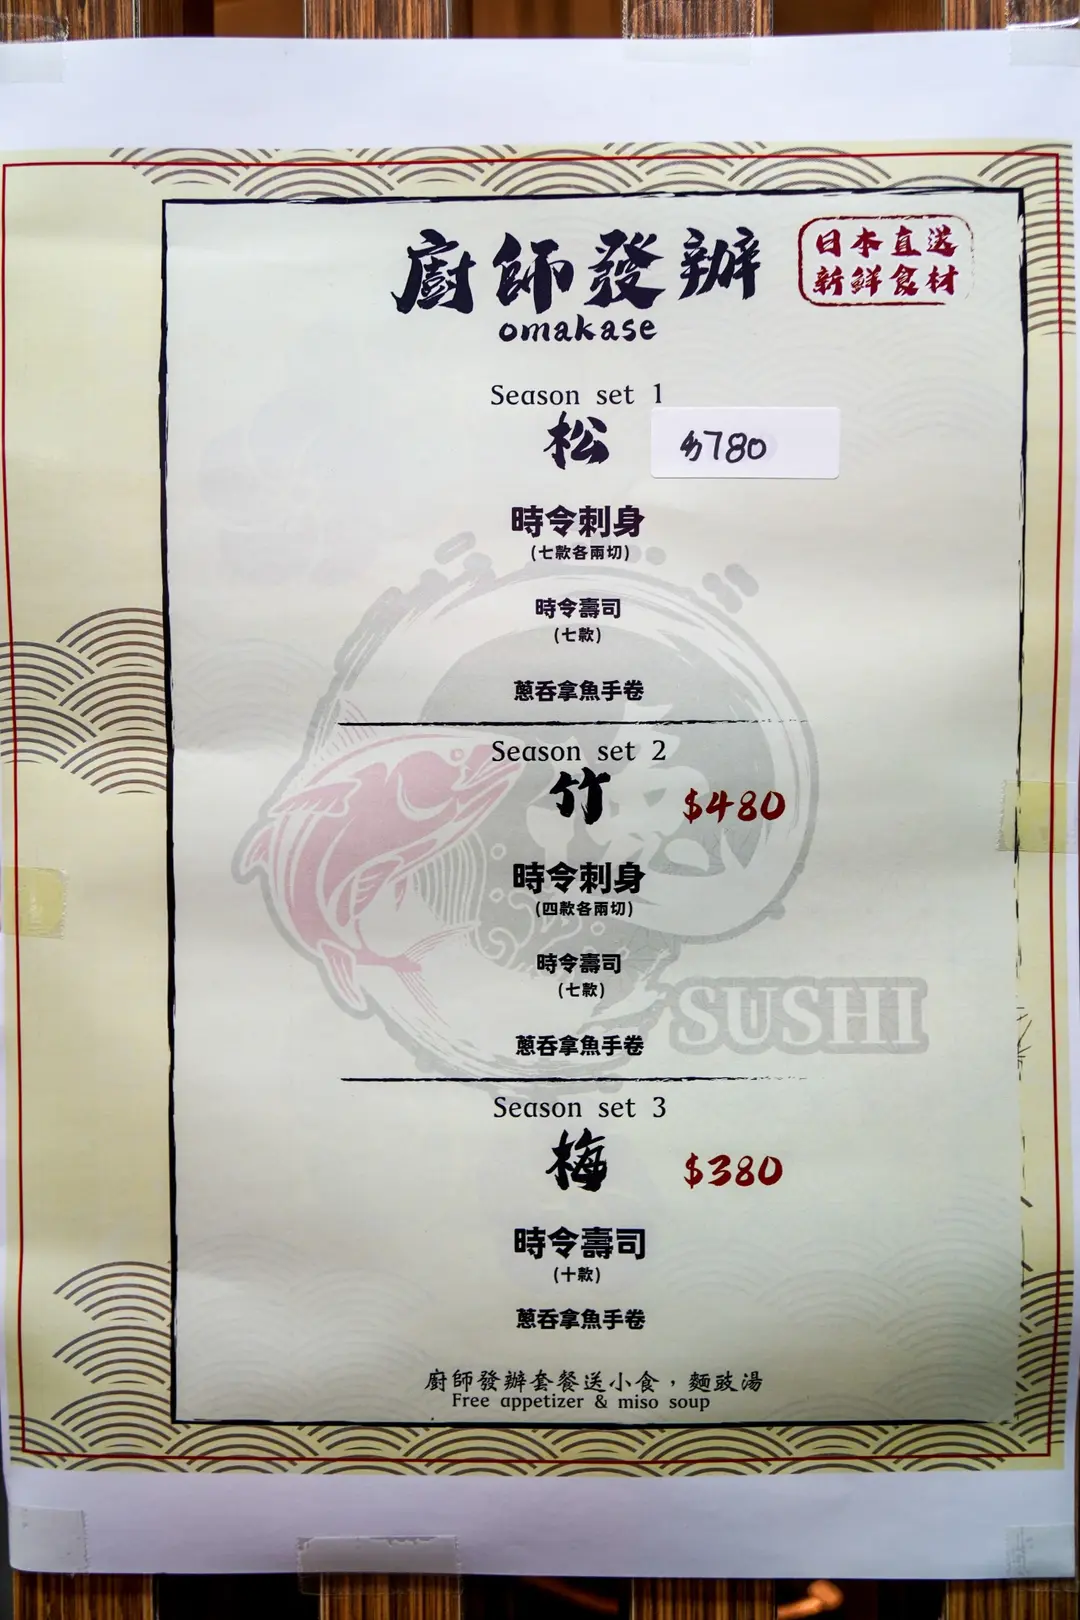 廚師發辦
日本直送
新鮮食材
omakase
Season set 1
松
$780
時令刺身
(七款各兩切)
時令壽司
(七款)
蔥吞拿魚手卷
Season set 2
竹
$480
時令刺身
(四款各兩切)
時令壽司
(七款)
蔥吞拿魚手卷
SUSHI
Season set 3
梅
$380
時令壽司
(十款)
蔥吞拿魚手卷
廚師發辦套餐送小食，麵豉湯
Free appetizer & miso soup